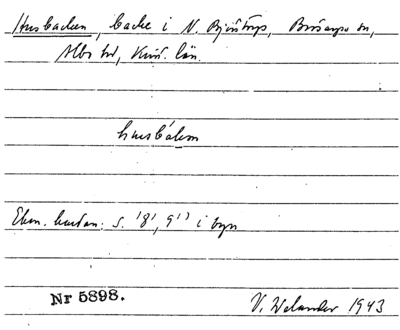 Husbacken, backe i N. Björstorp, Brösarps sn,
Albo hd, Krist. län.
husbákan
Ekon. kartan: s. '8', 9'' i byn
Nr 5898.
V. Welander 1943